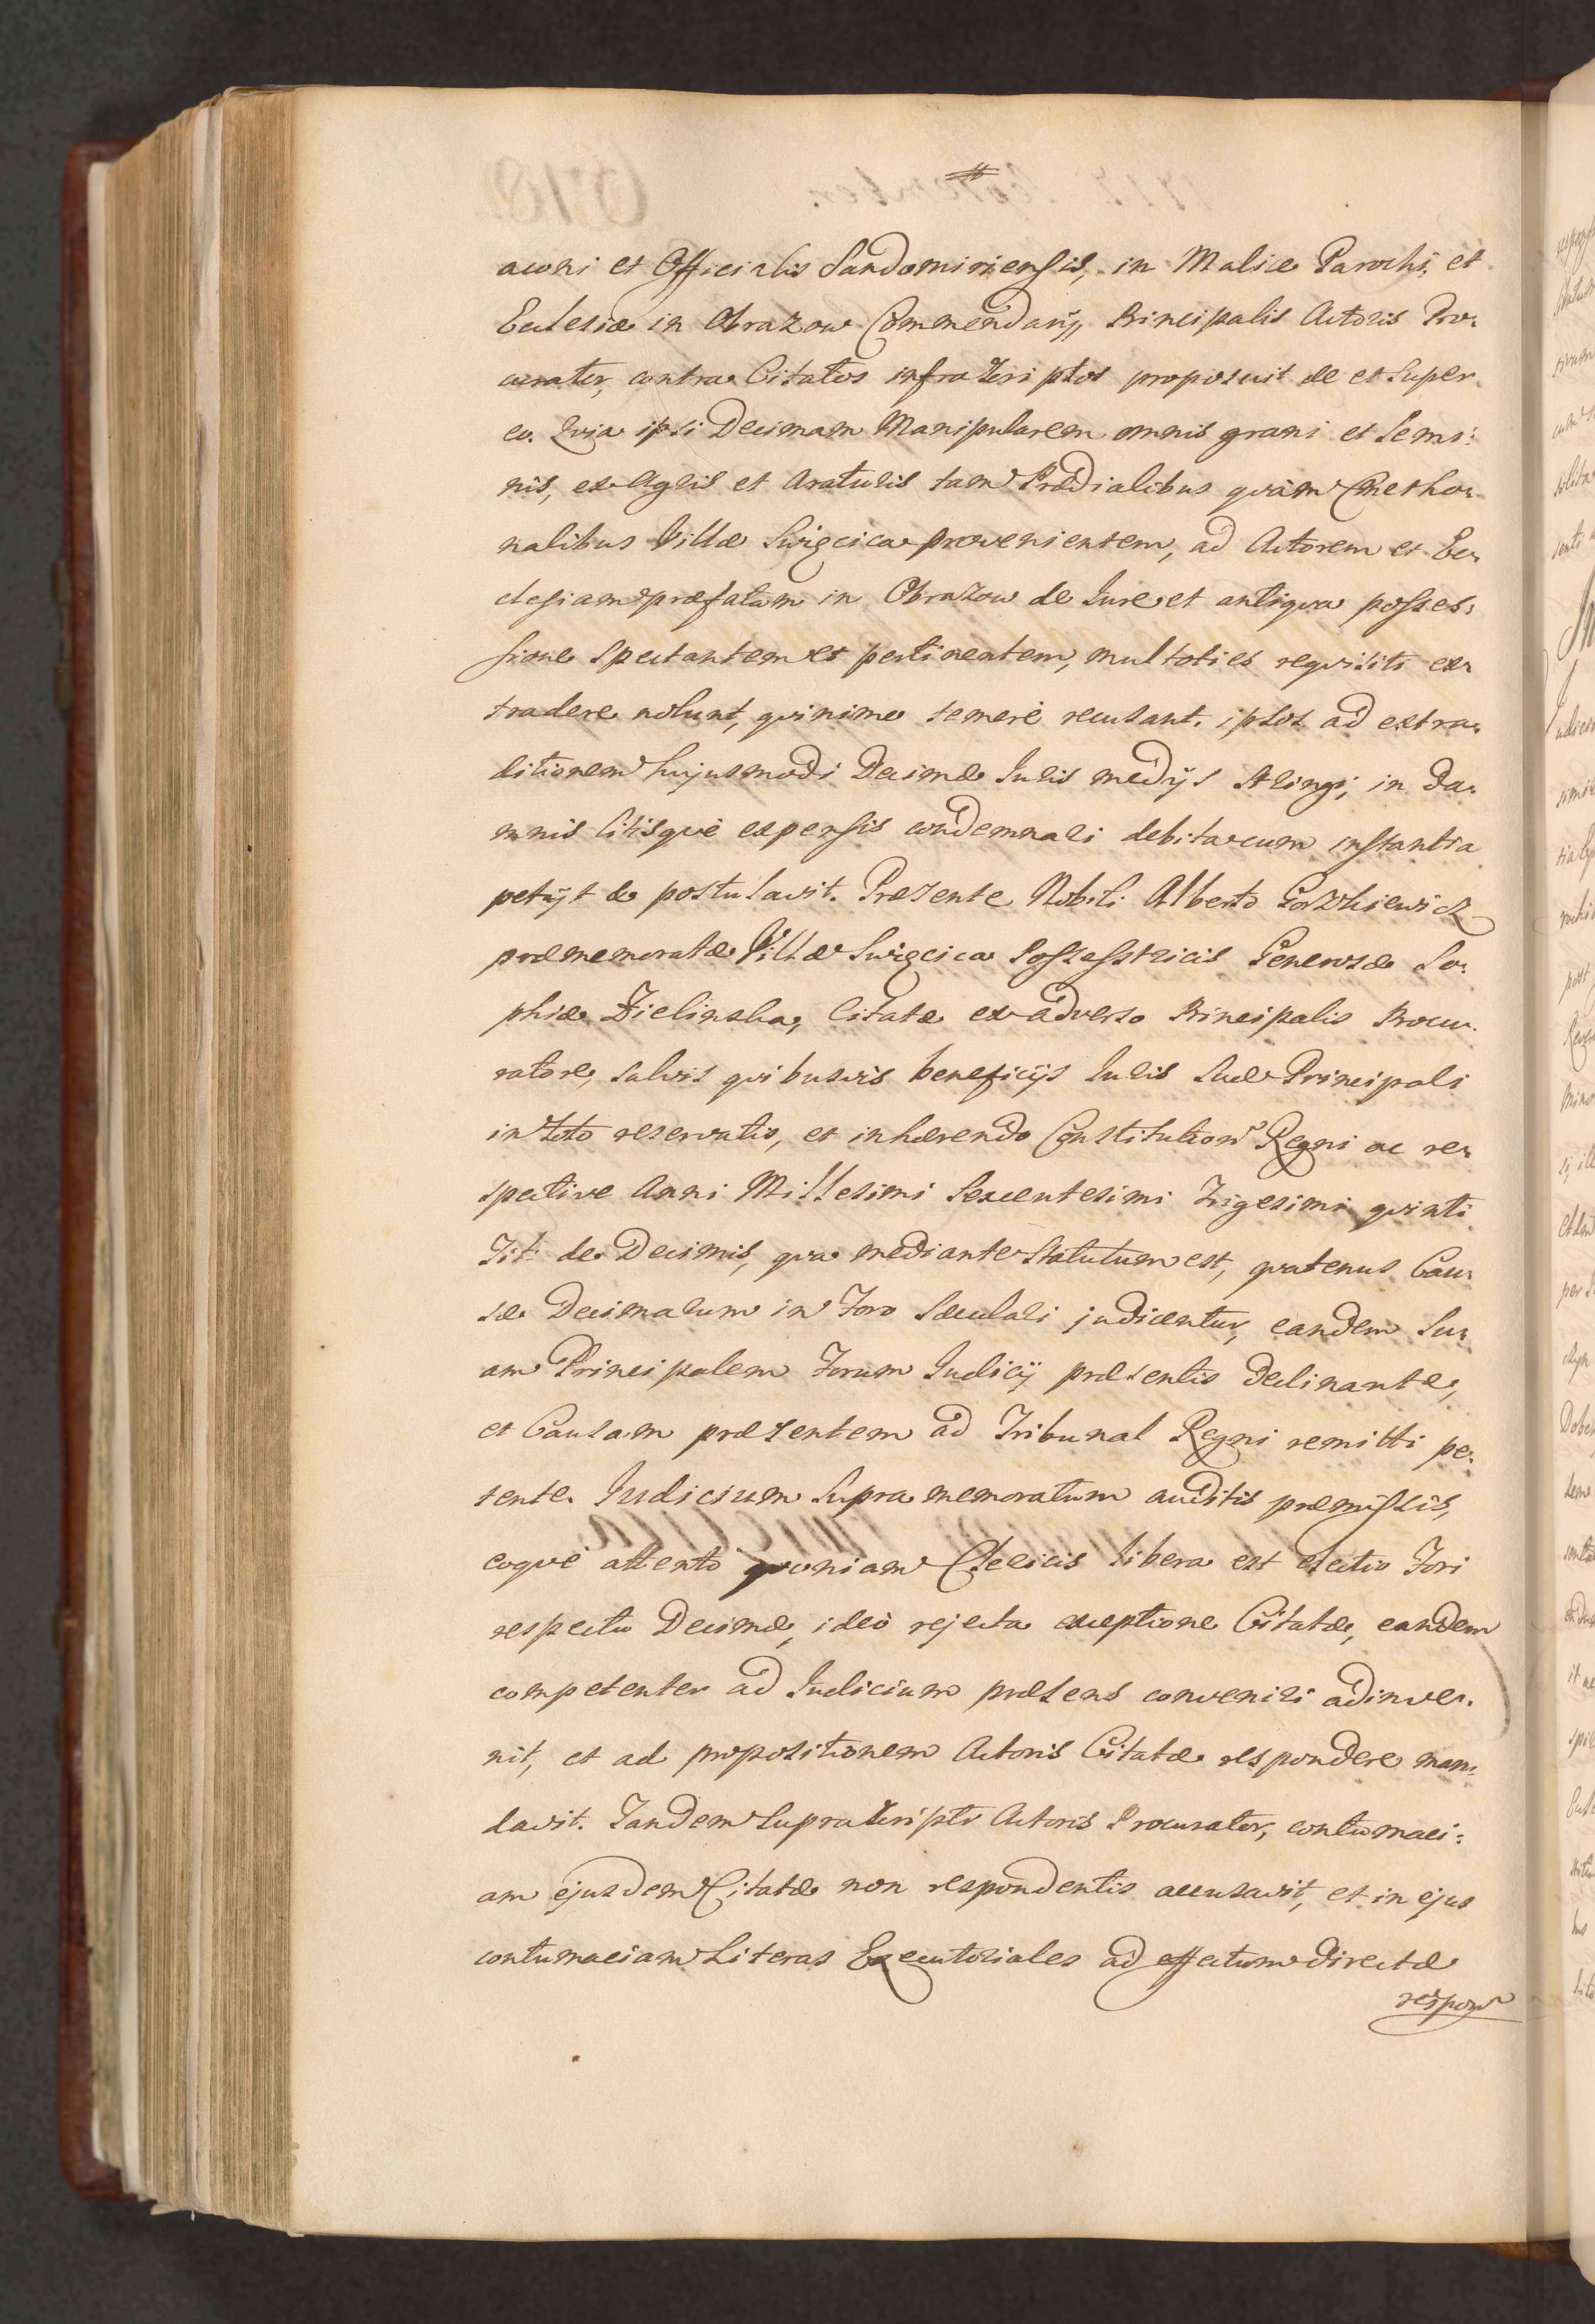 aconi et Officialis Sandomiriensis, in Malice Parochi, et
Ecclesiæ in Obrazow Commendarij, Principalis Actoris Pro:
curator, contra Citatos infrascriptos proposuit de et super
eo. Quia ipsi Decimam Manipularem omnis grani et Semi:
nis, ex Agris et Araturis tam Prædialibus quàm Cmetho:
nalibus Villæ Swięcica provenientem, ad Actorem et Ec:
clesiam præfatam in Obrazow de Iure et antiqua posses:
sione spectantem et pertinentem, multoties requisiti ex:
tradere nolunt, quinimo temerè recusant. ipsos ad extra:
ditionem hujusmodi Decimæ Iuris medijs stringi, in da:
mnis litisque expensis condemnari debita cum instantia
petijt & postulavit. Præsente Nobili Alberto Gorzkiewicz
præmemoratæ Villæ Swięcica Possessricis Generosæ So:
phiæ Zielinska, Citatæ ex adverso Principalis Procu:
ratore, salvis quibusvis beneficijs Iuris Suæ Principali
in toto reservatis, et inhærendo Constitution Regni ac re:
spective Anni Millesimi Sexcentesimi Trigesimi quinti
Tit: de Decimis, qua mediante Statutum est, quatenus Cau:
sæ Decimarum in Foro Sæculari judicentur, eandem Su:
am Principalem Forum Iudicij præsentis declinante,
et Causam præsentem ad Tribunal Regni remitti pe:
tente. Iudicium Supra memoratum auditis præmissis,
eoquè attento quoniam Clericis libera est electio Fori
respectu Decimæ, ideò rejecta exceptione Citatæ, eandem
competenter ad Iudicium præsens conveniri adinve:
nit, et ad propositionem Actoris Citatæ respondere man:
davit. Tandem Suprascripti Actoris Procurator, contumaci:
am ejusdem Citatæ non respondentis accusavit, et in ejus
contumaciam Literas Executoriales ad effectum directæ
respon